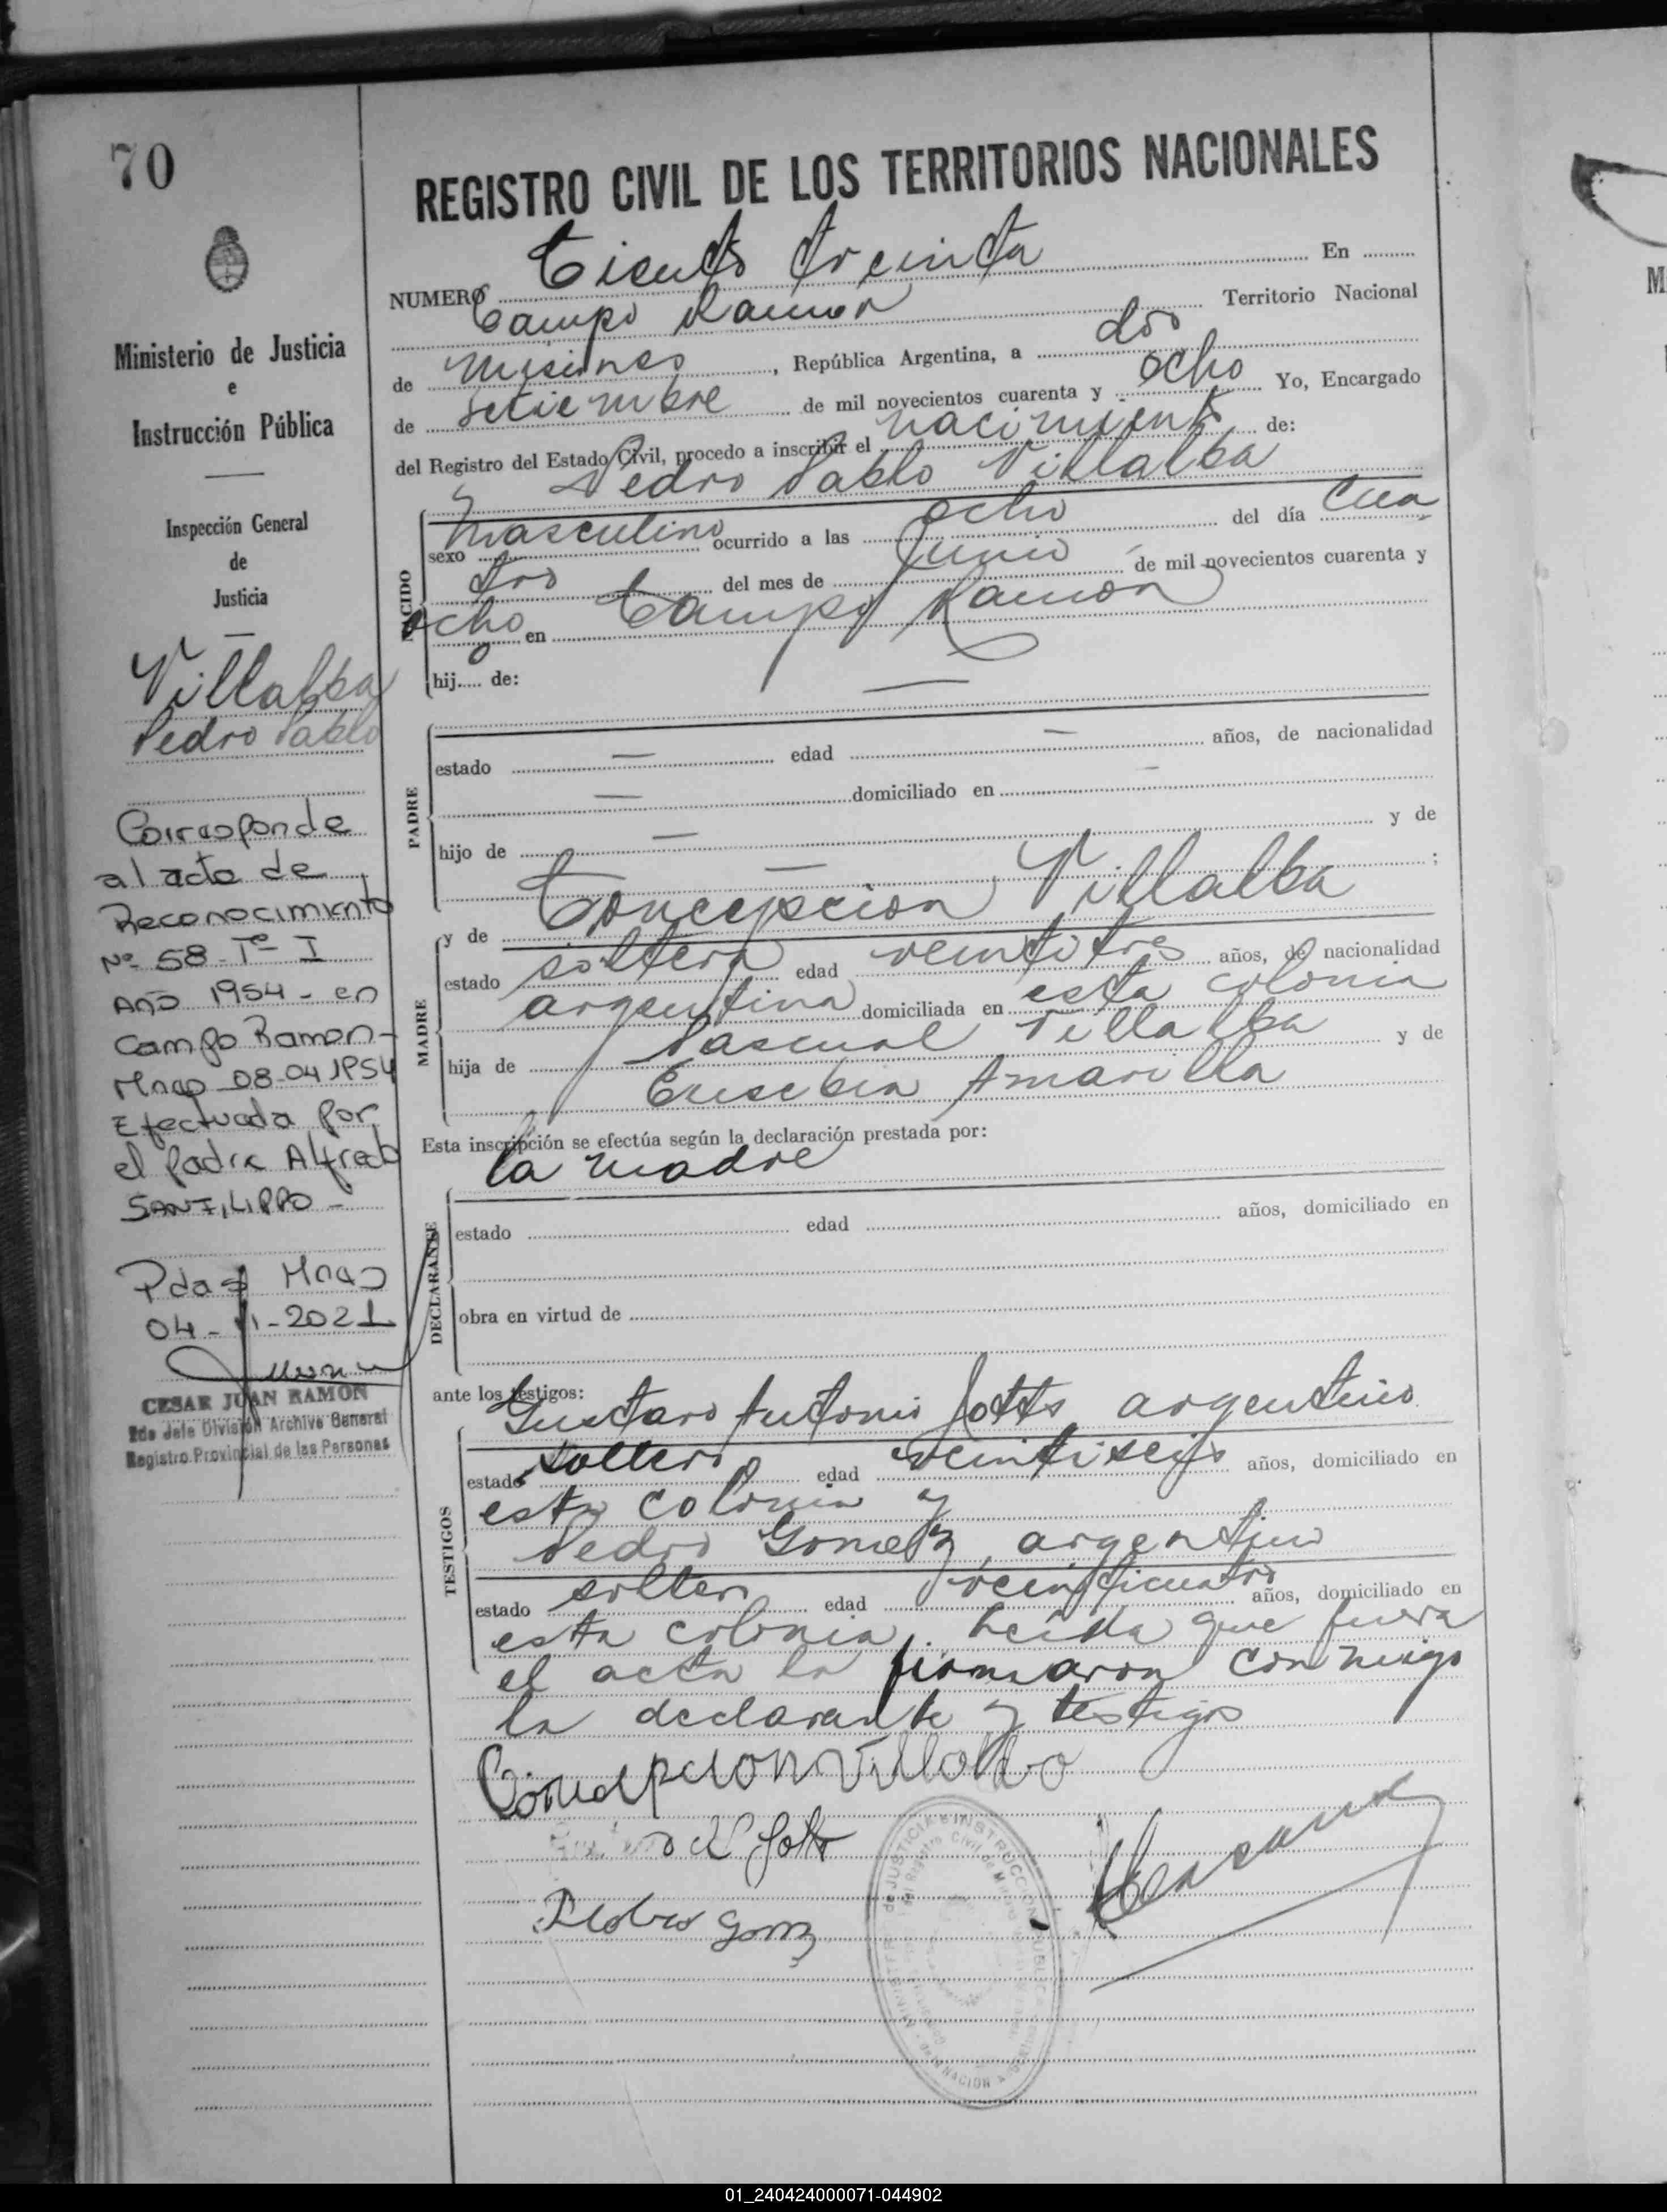 70
Ministerio de Justicia
e
Instrucción Pública
Inspección General
de
Justicia
Villalba
Pedro Pablo
Corresponde
al acta de
Reconocimiento
Nº 58 - Tº I
Año 1954 - en
Campo Ramon -
Mnes 08-04-1954
Efectuada por
el padre Alfredo
SANFILIPPO -
Pdas Mnes
04-11-2021
CESAR JUAN RAMON
2do Jefe División Archivo General
Registro Provincial de las Personas
REGISTRO CIVIL DE LOS TERRITORIOS NACIONALES
NUMERO Ciento treinta En
Campo Ramon Territorio Nacional
de Misiones, República Argentina, a dos
de setiembre de mil novecientos cuarenta y ocho Yo, Encargado
del Registro del Estado Civil, procedo a inscribir el nacimiento de:
Pedro Pablo Villalba
NACIDO
sexo masculino ocurrido a las ocho del día cua
tro del mes de Junio de mil novecientos cuarenta y
ocho en Campo Ramon
hij..... de: —
PADRE
estado — edad — años, de nacionalidad
— domiciliado en —
hijo de — y de
— ;
y de Concepcion Villalba
MADRE
estado soltera edad veintitres años, de nacionalidad
argentina domiciliada en esta colonia
hija de Pascual Villalba y de
Eusebia Amarilla
Esta inscripción se efectúa según la declaración prestada por:
la madre
DECLARANTE
estado edad años, domiciliado en
obra en virtud de
ante los testigos:
Gustavo Antonio Jotts argentino
TESTIGOS
estado soltero edad veintiseis años, domiciliado en
esta colonia y
Pedro Gomez, argentino
estado soltero edad veinticuatro años, domiciliado en
esta colonia. Leida que fuera
el acta la firmaron conmigo
la declarante y testigos
Concepcion Villalba
Pedro Gomz
01_240424000071-044902